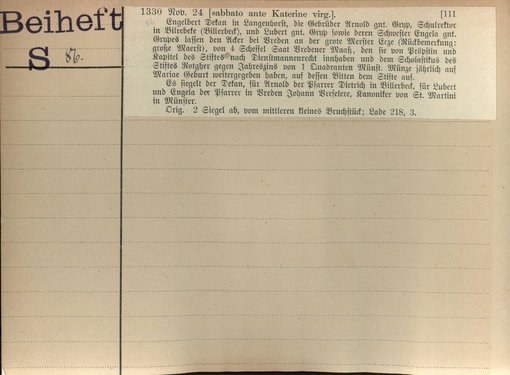 Beiheft
S 86.
1330 Nov. 24 [sabbato ante Katerine virg.]. [111
Engelbert Dekan in Langenhorst, die Gebrüder Arnold gnt. Gryp, Schulrektor
in Bilrebeke (Billerbeck), und Lubert gnt. Gryp sowie deren Schwester Engela gnt.
Grypes lassen den Acker bei Vreden an der grote Merster Erge (Rückbemerkung:
große Maerst), von 4 Scheffel Saat Vredener Maaß, den sie von Pröpstin und
Kapitel des Stiftes nach Dienstmannenrecht innhaben und dem Scholastikus des
Stiftes Rotgher gegen Jahreszins von 1 Quadranten Münst. Münze jährlich auf
Mariae Geburt weitergegeben haben, auf dessen Bitten dem Stifte auf.
Es siegelt der Dekan, für Arnold der Pfarrer Dietrich in Billerbeck, für Lubert
und Engela der Pfarrer in Vreden Johann Vreselere, Kanoniker von St. Martini
in Münster.
Orig. 2 Siegel ab, vom mittleren kleines Bruchstück; Lade 218, 3.